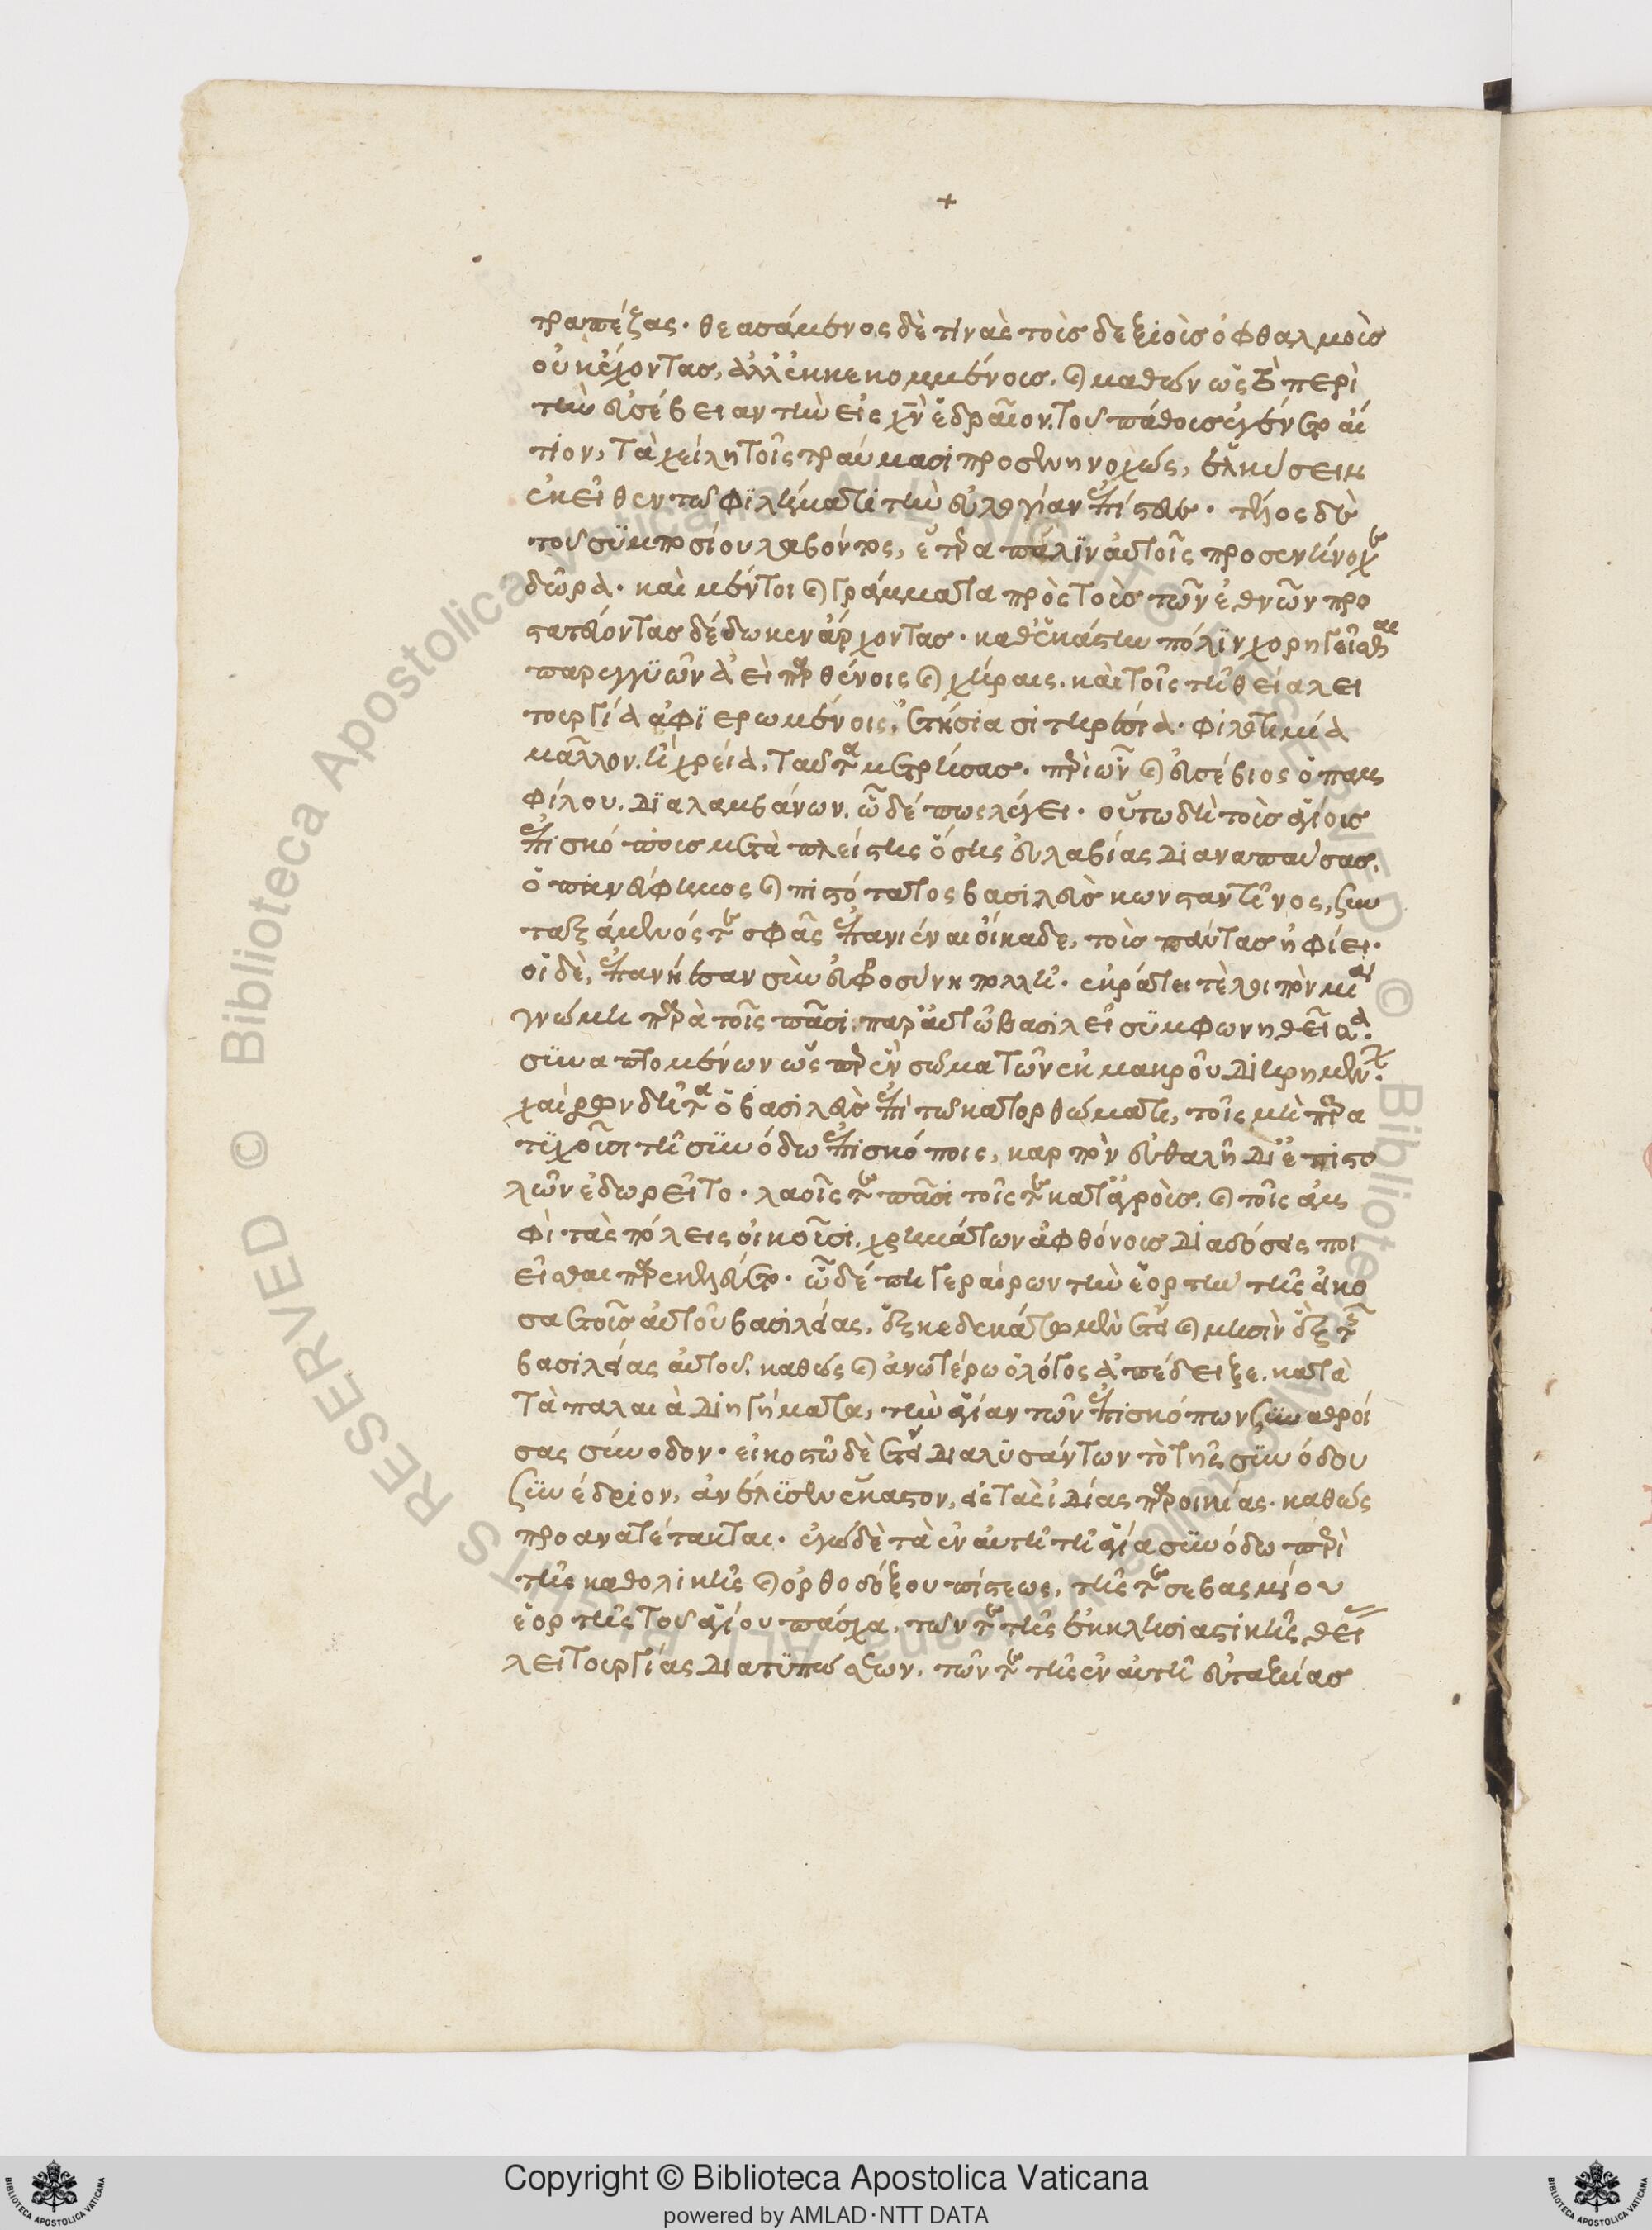 +
τραπέζας· θεασάμενος δέ τινας τοὺς δεξιοὺς ὀφθαλμοὺς
οὐκ ἔχοντας, ἀλλ' ἐκκεκομμένους, καὶ μαθὼν ὡς τὸ περὶ
τὴν εὐσέβειαν τὴν εἰς χν ἑδραῖον, τοῦ πάθους ἐγένετο αἴ
τιον, τὰ χείλη τοῖς τραύμασι προσενηνοχὼς, ἑλκύσειν
ἐκεῖθεν τῷ φιλήματι τὴν εὐλογίαν ἐπίστευε· τέλος δὲ
τοῦ συμποσίου λαβόντος, ἕτερα πάλιν αὐτοῖς προσενήνοχε
δῶρα· καὶ μέντοι καὶ γράμματα πρὸς τοὺς τῶν ἐθνῶν προ
στατεύοντας δέδωκεν ἄρχοντας· καθ' ἑκάστην πόλιν χορηγεῖσθαι
παρεγγυῶν ἀεὶ παρθένοις καὶ χήραις, καὶ τοῖς τῇ θείᾳ λει
τουργίᾳ ἀφιερωμένοις, ἐτήσια σιτηρέσια· φιλοτιμίᾳ
μᾶλλον, ἢ χρείᾳ, ταῦτα μετρήσας· περὶ ὧν καὶ εὐσέβιος ὁ παμ
φίλου, διαλαμβάνων, ὧδέ πως λέγει· οὕτω δὴ τοὺς ἁγίους
ἐπισκόπους μετὰ πλείστης ὅσης εὐλαβείας διαναπαύσας,
ὁ πανεύφημος καὶ πιστότατος βασιλεὺς κωνσταντῖνος, συν
ταξάμενός τε σφᾶς ἐπανιέναι οἴκαδε, τοὺς πάντας ἠφίει·
οἱ δὲ, ἐπανῄεσαν σὺν εὐφροσύνῃ πολλῇ· ἐκράτει τε λοιπὸν μία
γνώμη παρὰ τοῖς πᾶσι, παρ' αὐτῷ βασιλεῖ συμφωνηθεῖσα,
συναπτομένων ὥσπερ ἓν σῶμα τῶν ἐκ μακροῦ διῃρημένων.
χαίρων δῆτα ὁ βασιλεὺς ἐπὶ τῷ κατορθώματι, τοῖς μὴ παρα
τυχοῦσι τῇ συνόδῳ ἐπισκόποις, καρπὸν εὐθαλῆ δι' ἐπιστο
λῶν ἐδωρεῖτο· λαοῖς τε πᾶσι τοῖς τε κατ' ἀγροὺς, καὶ τοῖς ἀμ
φὶ τὰς πόλεις οἰκοῦσι, χρημάτων ἀφθόνους διαδόσεις ποι
εῖσθαι παρεκελεύετο· ὧδέ πη γεραίρων τὴν ἑορτὴν τῆς εἰκο
σαετοῦς αὐτοῦ βασιλείας,
βασιλείας αὐτοῦ, καθὼς καὶ ἀνωτέρω ὁ λόγος ἀπέδειξε, κατὰ
τὰ παλαιὰ διηγήματα, τὴν ἁγίαν τῶν ἐπισκόπων συναθροί
σας σύνοδον· εἰκοστῷ δὲ ἔτει διαλυσάντων τὸ τῆς συνόδου
συνέδριον, ἀνέλυσεν ἕκαστον, εἰς τὰς ἰδίας παροικίας· καθὼς
προανατέτακται· ἐγὼ δὲ τὰ ἐν αὐτῇ τῇ ἁγίᾳ συνόδῳ περὶ
τῆς καθολικῆς καὶ ὀρθοδόξου πίστεως, τῆς τε σεβασμίου
ἑορτῆς τοῦ ἁγίου πάσχα, τῶν τε τῆς ἐκκλησιαστικῆς θεί
λειτουργίας διατυπώσεων, τῶν τε τῆς ἐν αὐτῇ εὐταξίας
Copyright © Biblioteca Apostolica Vaticana
powered by AMLAD·NTT DATA